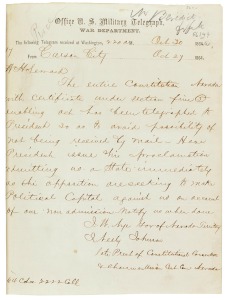 Office U. S. Military Telegraph,
WAR DEPARTMENT.
The following Telegram received at Washington, M. Oct 30 1864.
From Carson City Oct 29 1864.
The entire Constitution Nevada
with certificate under section five
enabling act has been telegraphed to
President so as to avoid possibility of
not being received by mail Have
President issue his proclamation
admitting as a State immediately
as the opposition are seeking to make
Political Capital against us on account
of our non admission Notify us when done
Gov of Nevada Territory
J Neely Johnson
Prest of Constitutional Convention
Nevada